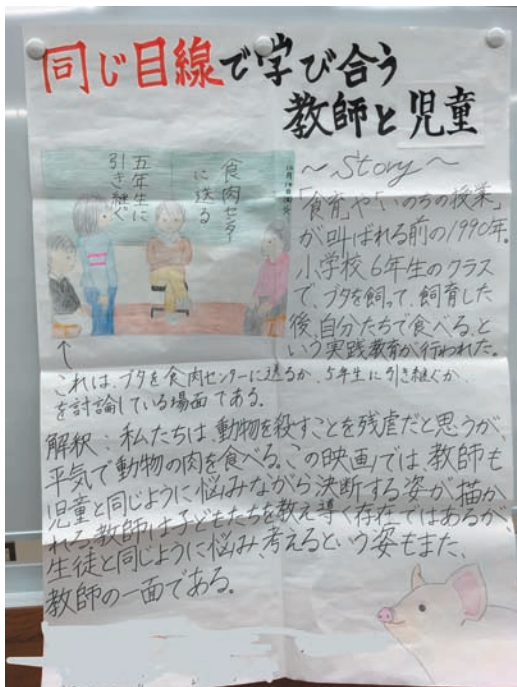 同じ目線で学び合う
教師と児童
食肉センター
に送る
五年生に
引き継ぐ
~ Story ~
「食育」や「いのちの授業」
が叫ばれる前の1990年。
小学校6年生のクラス
で、ブタを飼って、飼育した
後、自分たちで食べる、と
いう実践教育が行われた。
↑
これは、ブタを食肉センターに送るか、5年生に引き継ぐか、
を討論している場面である。
解釈:私たちは、動物を殺すことを残虐だと思うが、
平気で動物の肉を食べる。この映画では、教師も
児童と同じように悩みながら決断する姿が描か
れる教師は子どもたちを教え導く存在ではあるが、
生徒と同じように悩み考えるという姿もまた、
教師の一面である。